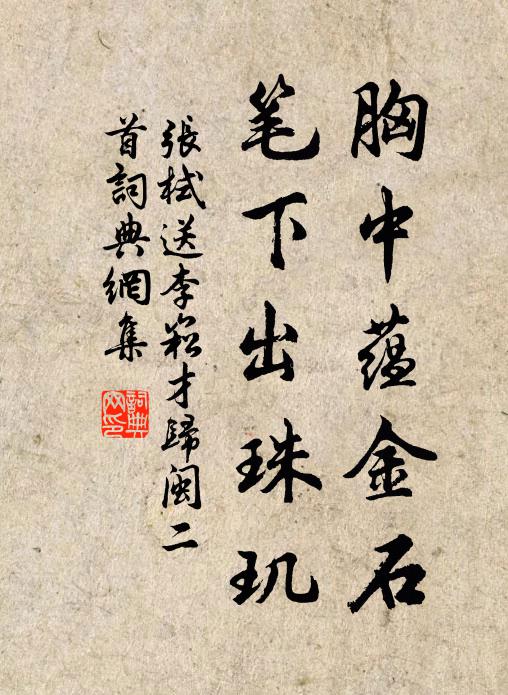 胸中蕴金石
笔下出珠玑
張栻送李崧才歸閩二
首詞典網集
詞典网印